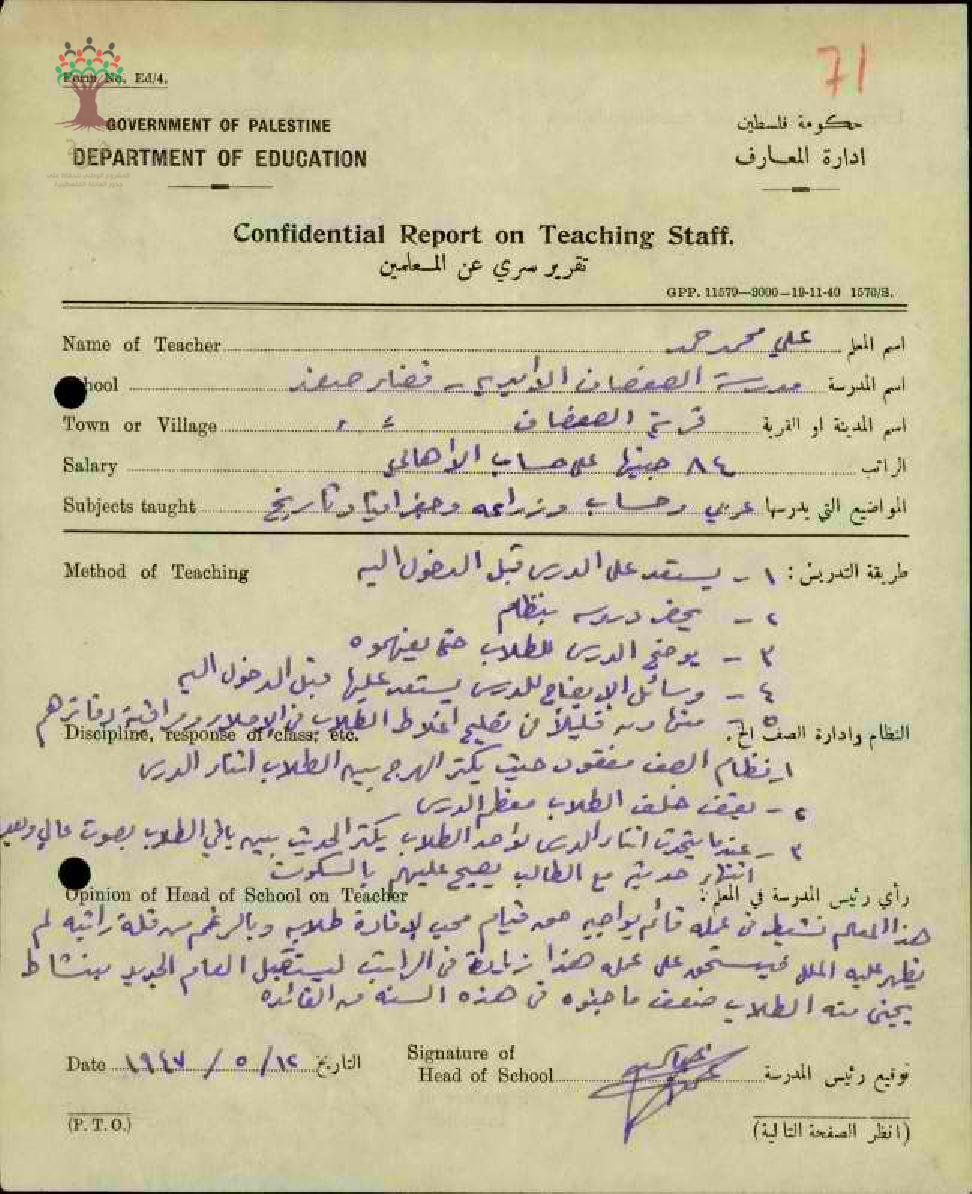 71
Form No. Ed/4.
GOVERNMENT OF PALESTINE
حكومة فلسطين
DEPARTMENT OF EDUCATION
ادارة المعارف
Confidential Report on Teaching Staff.
تقرير سري عن المعلمين
GPP. 11579—3000—19-11-40 1570/S.
Name of Teacher علي محمد حمد اسم المعلم
School مدرسة الصفصاف الاميرية - قضاء صفد اسم المدرسة
Town or Village قرية الصفصاف اسم المدينة او القرية
Salary ٨٤ جنيها على حساب الاهالي الراتب
Subjects taught عربي وحساب وزراعه وجغرافيا وتاريخ المواضيع التي يدرسها
Method of Teaching طريقة التدريس: ١ - يستعد على الدرس قبل الدخول اليه
٢ - يحضر دروسه بنظام
٣ - يوضح الدرس للطلاب حتى يفهموه
٤ - وسائل الايضاح للدرس يستعد عليها قبل الدخول اليه
٥ - قليلاً في تصليح اغلاط الطلاب في الاملاء ومراقبة دفاترهم
Discipline, response of class; etc. النظام وادارة الصف الخ.
١ - نظام الصف مفقود حيث يكثر الهرج بين الطلاب اثناء الدرس
٢ - يقف خلف الطلاب معظم الدرس
٣ - عندما يتحدث اثناء الدرس لواحد الطلاب يكثر الحديث بين باقي الطلاب بصوت عالي وبعد
انتهاء حديثه مع الطالب يصيح عليهم بالسكوت
Opinion of Head of School on Teacher رأي رئيس المدرسة في المعلم:
هذا المعلم نشيط في عمله قائم بواجبه حق قيام محب لافادة طلابه وبالرغم من قلة راتبه لم
يظهر عليه الملل فيستحق على عمله هذا زيادة في الراتب ليستقبل العام الجديد بنشاط
يجني منه الطلاب ضعف ما جنوه في هذه السنه من الفائده
Date ١٢ / ٥ / ١٩٤٧ التاريخ
Signature of
Head of School توقيع رئيس المدرسة
(P. T. O.) (انظر الصفحة التالية)